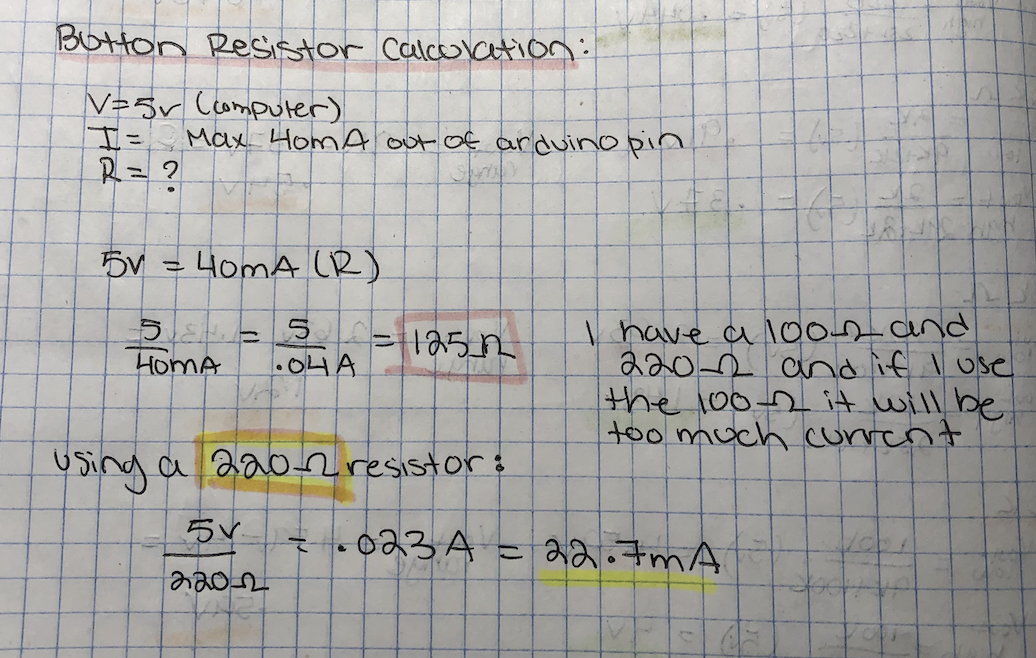 Button Resistor Calculation:
V=5v (computer)
I= Max 40mA out of arduino pin
R = ?
5v = 40mA (R)
5/40mA = 5/.04A = 125Ω
I have a 100Ω and
220Ω and if I use
the 100Ω it will be
too much current
using a 220Ω resistor:
5v/220Ω = .023A = 22.7mA